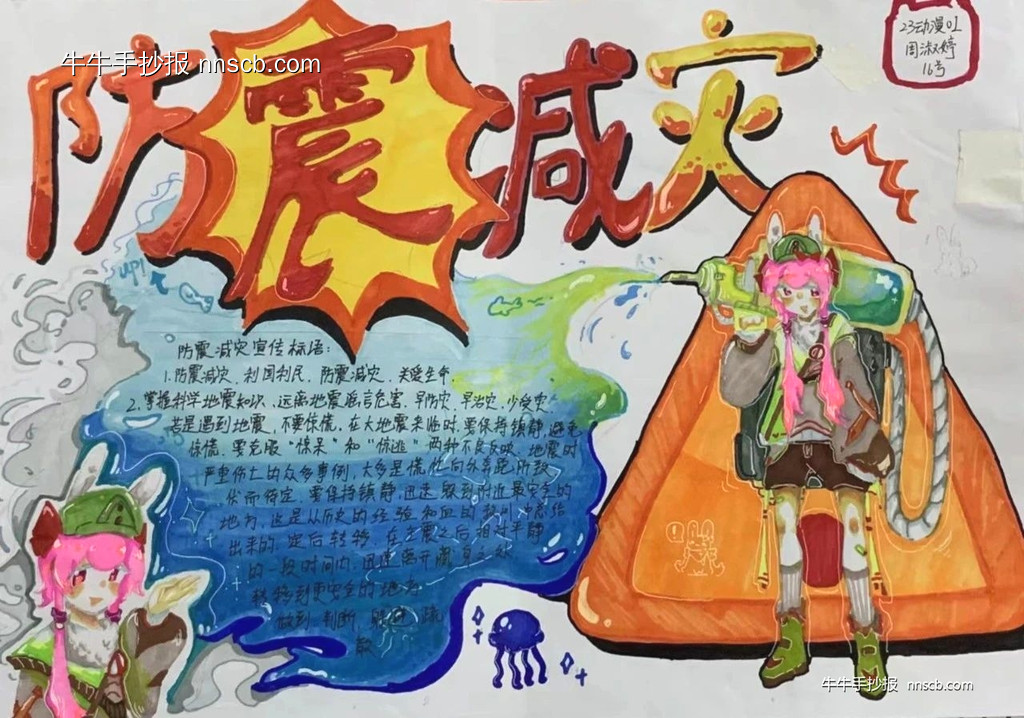 牛牛手抄报 nnscb.com
防震减灾
23动漫01
周淑婷
16号
up!
防震减灾宣传标语:
1.防震减灾、利国利民、防震减灾、关爱生命
2.掌握科学地震知识、远离地震谣言危害、早防灾、早治灾、少受灾
若是遇到地震,不要惊慌,在大地震来临时,要保持镇静,避免
惊慌,要克服“惊呆”和“惊逃”两种不良反映,地震时
严重伤亡的众多事例,大多是慌忙向外奔跑所致
伏而待定,要保持镇静,迅速躲到附近最安全的
地方,这是从历史的经验和血的教训中总结
出来的.定后转移,在主震之后相对平静
的一段时间内,迅速离开
转移到更安全的地方
做到 判断 疏
散
牛牛手抄报 nnscb.com